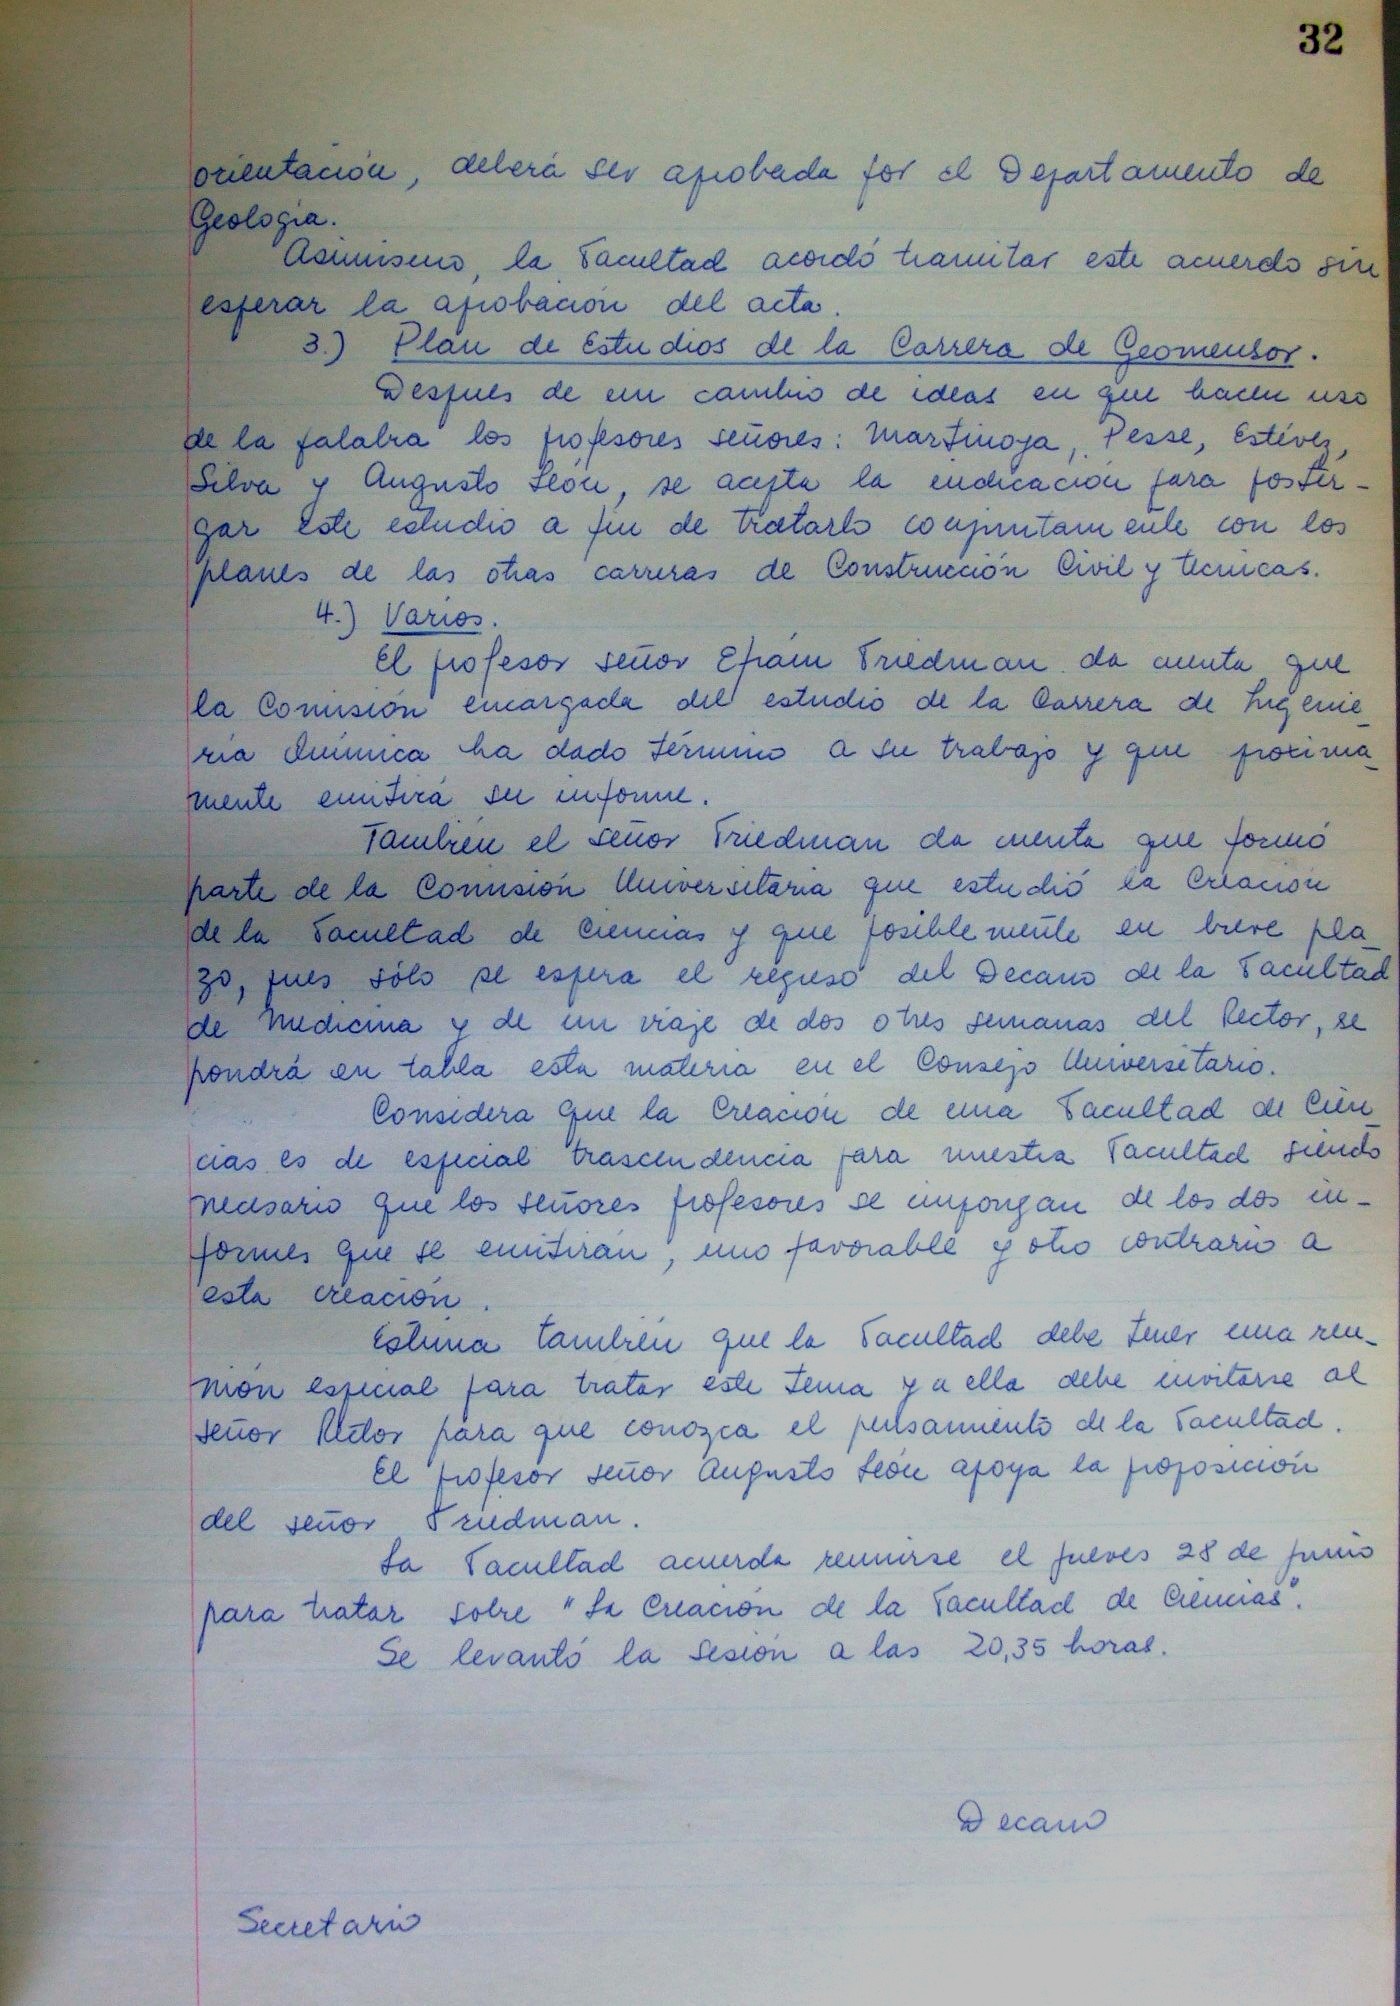 32
orientación, deberá ser aprobada por el Departamento de
Geología.
Asimismo, la Facultad acordó tramitar este acuerdo sin
esperar la aprobación del acta.
3.) Plan de Estudios de la Carrera de Geomensor.
Despues de un cambio de ideas en que hacen uso
de la palabra los profesores señores: Martinoya, Pesse, Estévez,
Silva y Augusto León, se acepta la indicación para poster-
gar este estudio a fin de tratarlo conjuntamente con los
planes de las otras carreras de Construcción Civil y técnicas.
4.) Varios.
El profesor señor Efraín Friedman da cuenta que
la Comisión encargada del estudio de la Carrera de Ingenie-
ría Química ha dado término a su trabajo y que proxima-
mente emitirá su informe.
También el señor Friedman da cuenta que formó
parte de la Comisión Universitaria que estudió la Creación
de la Facultad de Ciencias y que posiblemente en breve pla-
zo, pues sólo se espera el regreso del Decano de la Facultad
de Medicina y de un viaje de dos o tres semanas del Rector, se
pondrá en tabla esta materia en el Consejo Universitario.
Considera que la Creación de una Facultad de Cien-
cias es de especial trascendencia para nuestra Facultad siendo
necesario que los señores profesores se impongan de los dos in-
formes que se emitirán, uno favorable y otro contrario a
esta creación.
Estima también que la Facultad debe tener una reu-
nión especial para tratar este tema y a ella debe invitarse al
señor Rector para que conozca el pensamiento de la Facultad.
El profesor señor Augusto León apoya la proposición
del señor Friedman.
La Facultad acuerda reunirse el jueves 28 de junio
para tratar sobre "La Creación de la Facultad de Ciencias".
Se levantó la sesión a las 20,35 horas.
Decano
Secretario